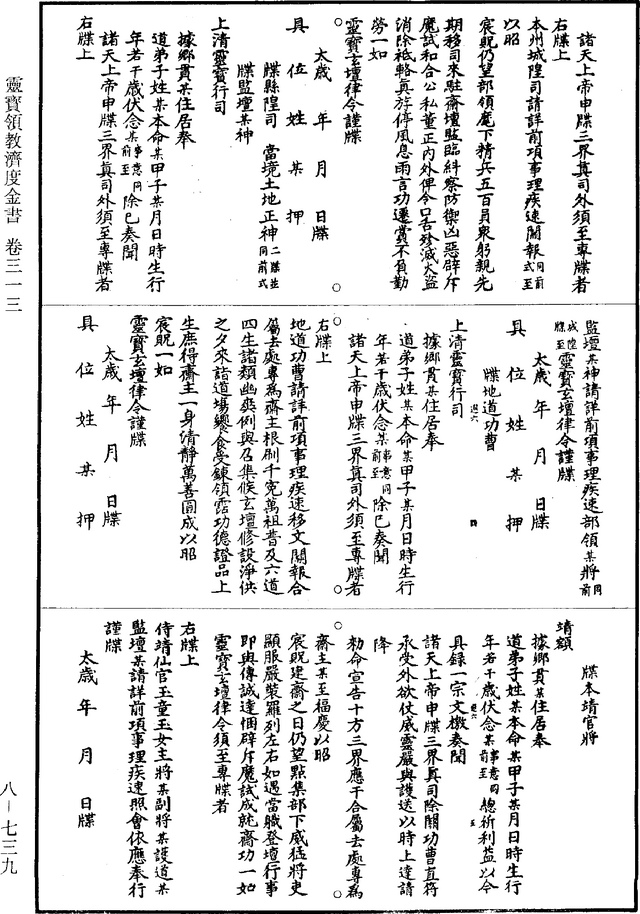 諸天上帝申牒三界眞司外須至專牒者
右牒上
本州城隍司請詳前項事理疾速關報同前式至
以昭
宸貺仍望部領麾下精兵五百員衆躬親先
期移司來駐齋壇監臨糾察防禦凶惡辟斥
魔試和合公私董正內外俾令口舌殄滅火盜
消除祗輅眞斿停風息雨言功遷賞不負勤
勞一如
靈寶玄壇律令謹牒
太歲年月日牒
具位姓某押
牒縣隍司 當境土地正神二牒並同前式
牒監壇某神
上清靈寶行司
據鄉貫某住居奉
道弟子姓某本命某甲子某月日時生行
年若干歲伏念某事意同前至除已奏聞
諸天上帝申牒三界眞司外須至專牒者
右牒上
監壇某神請詳前項事理疾速部領某將同前
城隍牒至靈寶玄壇律令謹牒
太歲年月日牒
具位姓某押
牒地道功曹
上清靈寶行司
據鄉貫某住居奉
道弟子姓某本命某甲子某月日時生行
年若干歲伏念某事意同前至除已奏聞
諸天上帝申牒三界眞司外須至專牒者
右牒上
地道功曹請詳前項事理疾速移文關報合
屬去處專爲齋主根刷千寃萬祖普及六道
四生諸類幽爽例與召集候玄壇修設淨供
之夕來詣道場饗食受鍊領霑功德證品上
生庶得齋主一身清靜萬善圓成以昭
宸貺一如
靈寶玄壇律令謹牒
太歲年月日牒
具位姓某押
牒本靖官將
靖額
據鄉貫某住居奉
道弟子姓某本命某甲子某月日時生行
年若干歲伏念某事意同前至總祈利益以今
具錄一宗文檄奏聞
諸天上帝申牒三界眞司除關功曹直符
承受外欲仗威靈嚴與護送以時上達請
降
勅命宣告十方三界應干合屬去處專爲
齋主某至福慶以昭
宸貺建齋之日仍望點集部下威猛將吏
顯服嚴裝羅列左右如遇當職登壇行事
即與傳誠達悃辟斥魔試成就齋功一如
靈寶玄壇律令須至專牒者
右牒上
侍靖仙官玉童玉女主將某副將某護道某
監壇某請詳前項事理疾速照會依應奉行
謹牒
太歲年月日牒
靈寶領教濟度金書 卷三一三
八-七三九